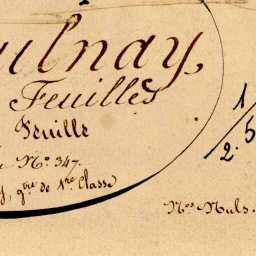 ulnay,
Feuilles
Feuille
N.º 347.
g.bre de 1.re Classe
1/2.5
N.os Muls.